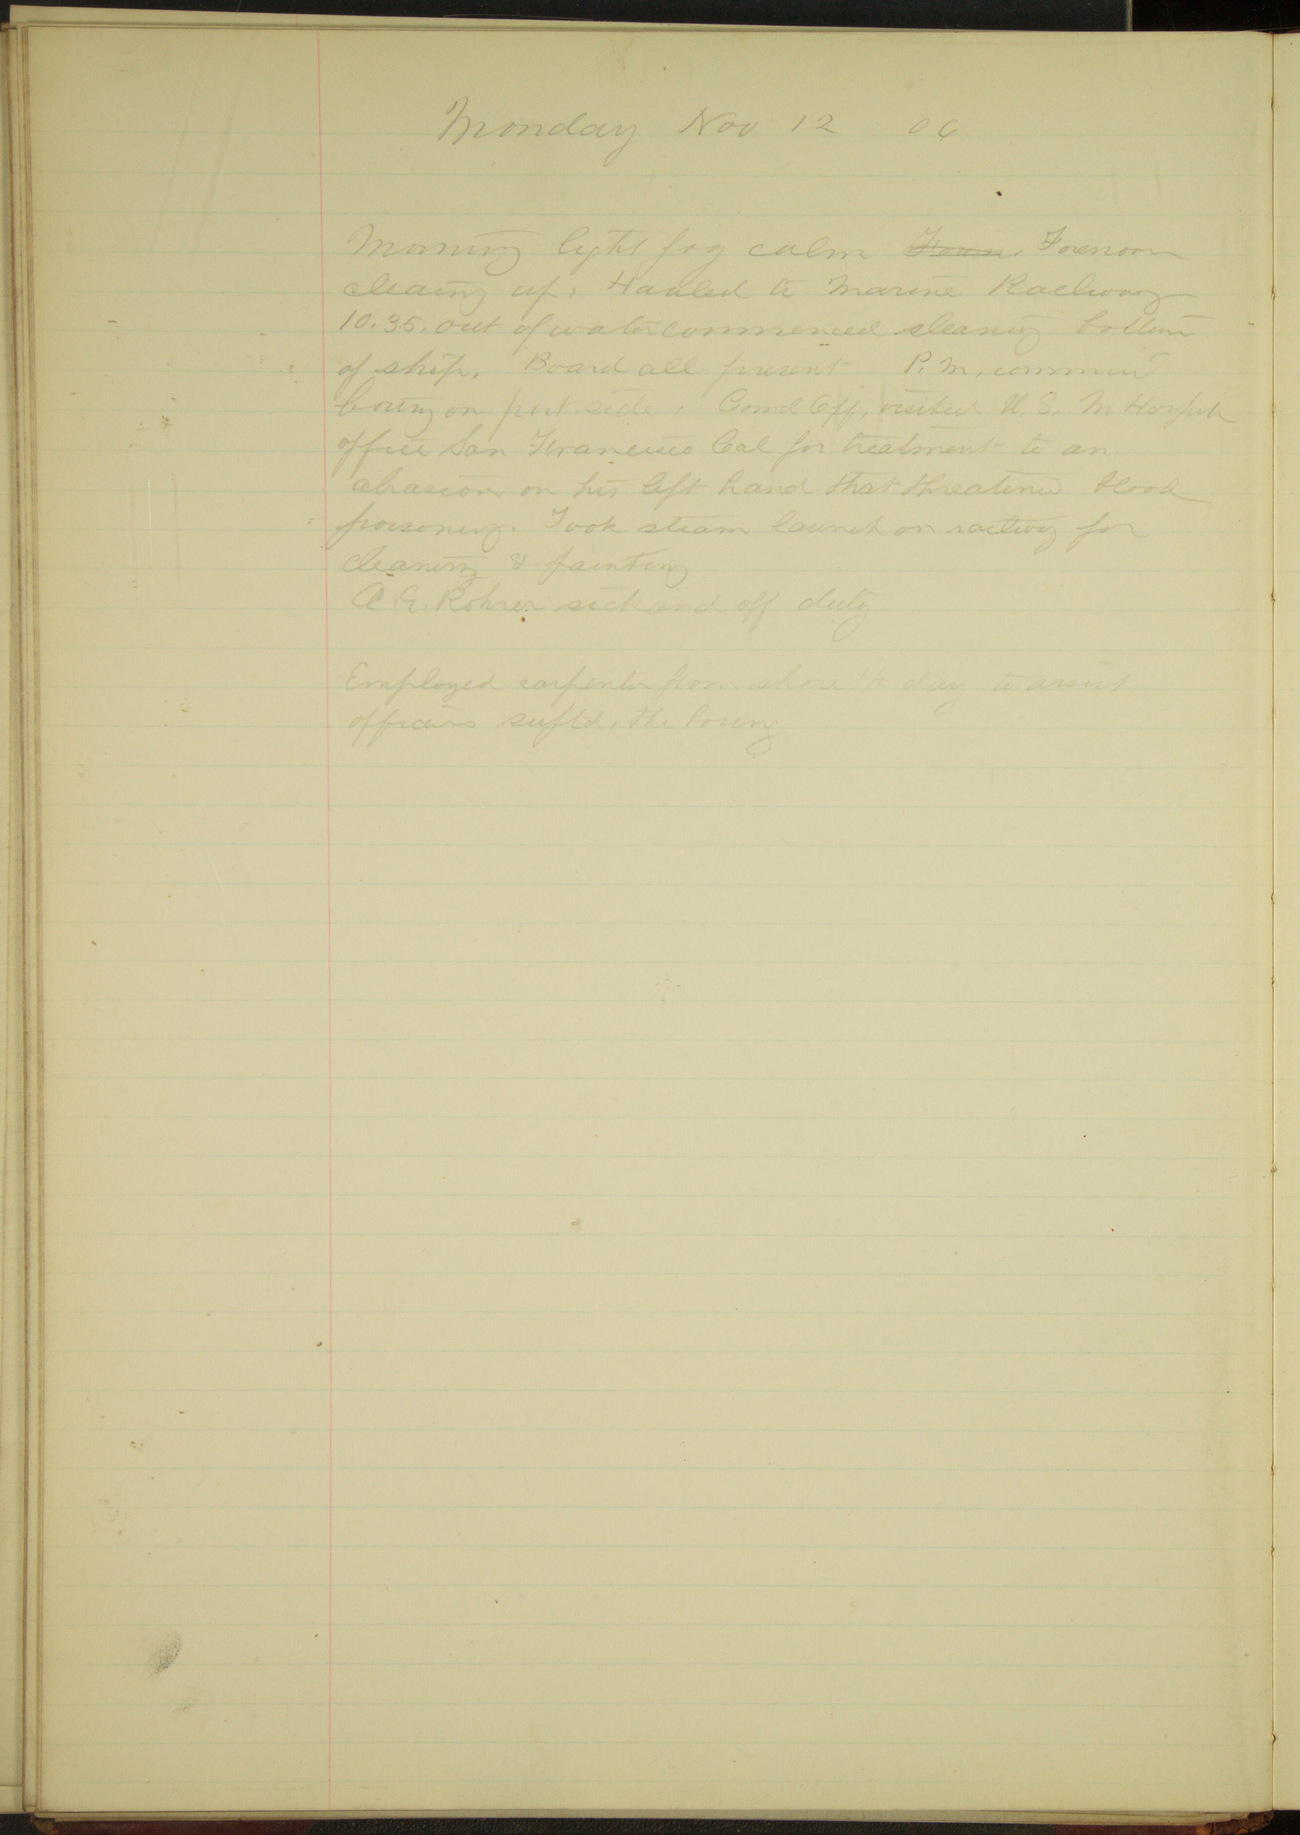 Monday Nov 12 06
Morning light fog calm Foren. Forenoon
cleaing up. Hauled to Marine Railway
10.35. out of water commenced cleaning bottom
of ship. Board all present P.M.
boring on port side. Comd Off, visited U. S. M Hospitl
office San Francisco Cal for treatment to an
abrasion on his left hand that threatened blood
poisoning. Took steam launch on railway for
cleaning & painting
A. G. Rohrer sick and off duty
Employed carpenter from shore 1/2 day to assist
officers the boring